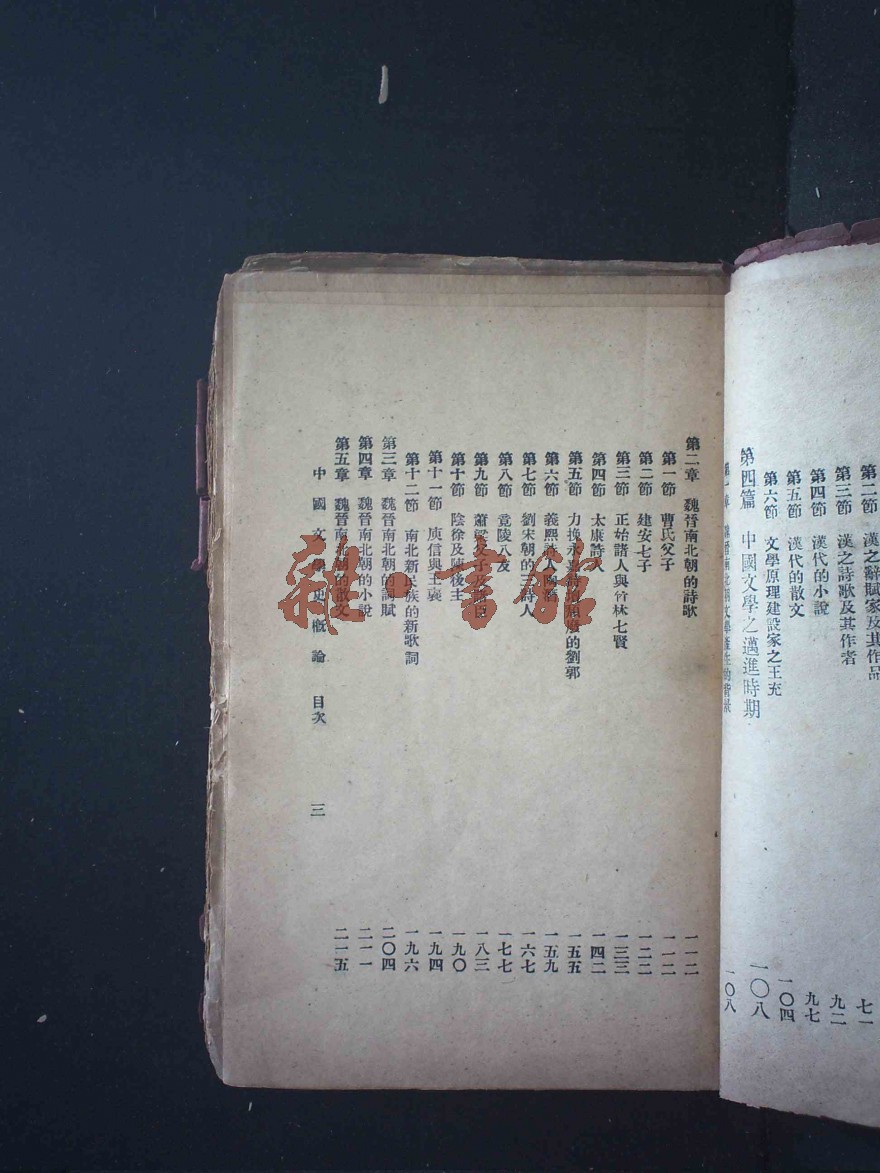 第二節 漢之辭賦家及其作品
第三節 漢之詩歌及其作者 七一
第四節 漢代的小說 九二
第五節 漢代的散文 九七
第六節 文學原理建設家之王充 一〇四
第四篇 中國文學之邁進時期 一〇八
第一章 魏晉南北朝文學產生的背景 一〇八
第二章 魏晉南北朝的詩歌 一一二
第一節 曹氏父子 一一二
第二節 建安七子 一二二
第三節 正始諸人與竹林七賢 一三三
第四節 太康詩人 一四二
第五節 力挽永嘉詩風頹廢的劉郭 一五五
第六節 義熙詩人陶潛 一五九
第七節 劉宋朝的三詩人 一六七
第八節 竟陵八友 一七七
第九節 蕭梁父子及 一八三
第十節 陰徐及陳後主 一九〇
第十一節 庾信與王褒 一九四
第十二節 南北新民族的新歌詞 一九六
第三章 魏晉南北朝的詞賦 二〇四
第四章 魏晉南北朝的小說 二一一
第五章 魏晉南北朝的散文 二一五
中國文學史概論 目次 三
雜·書館